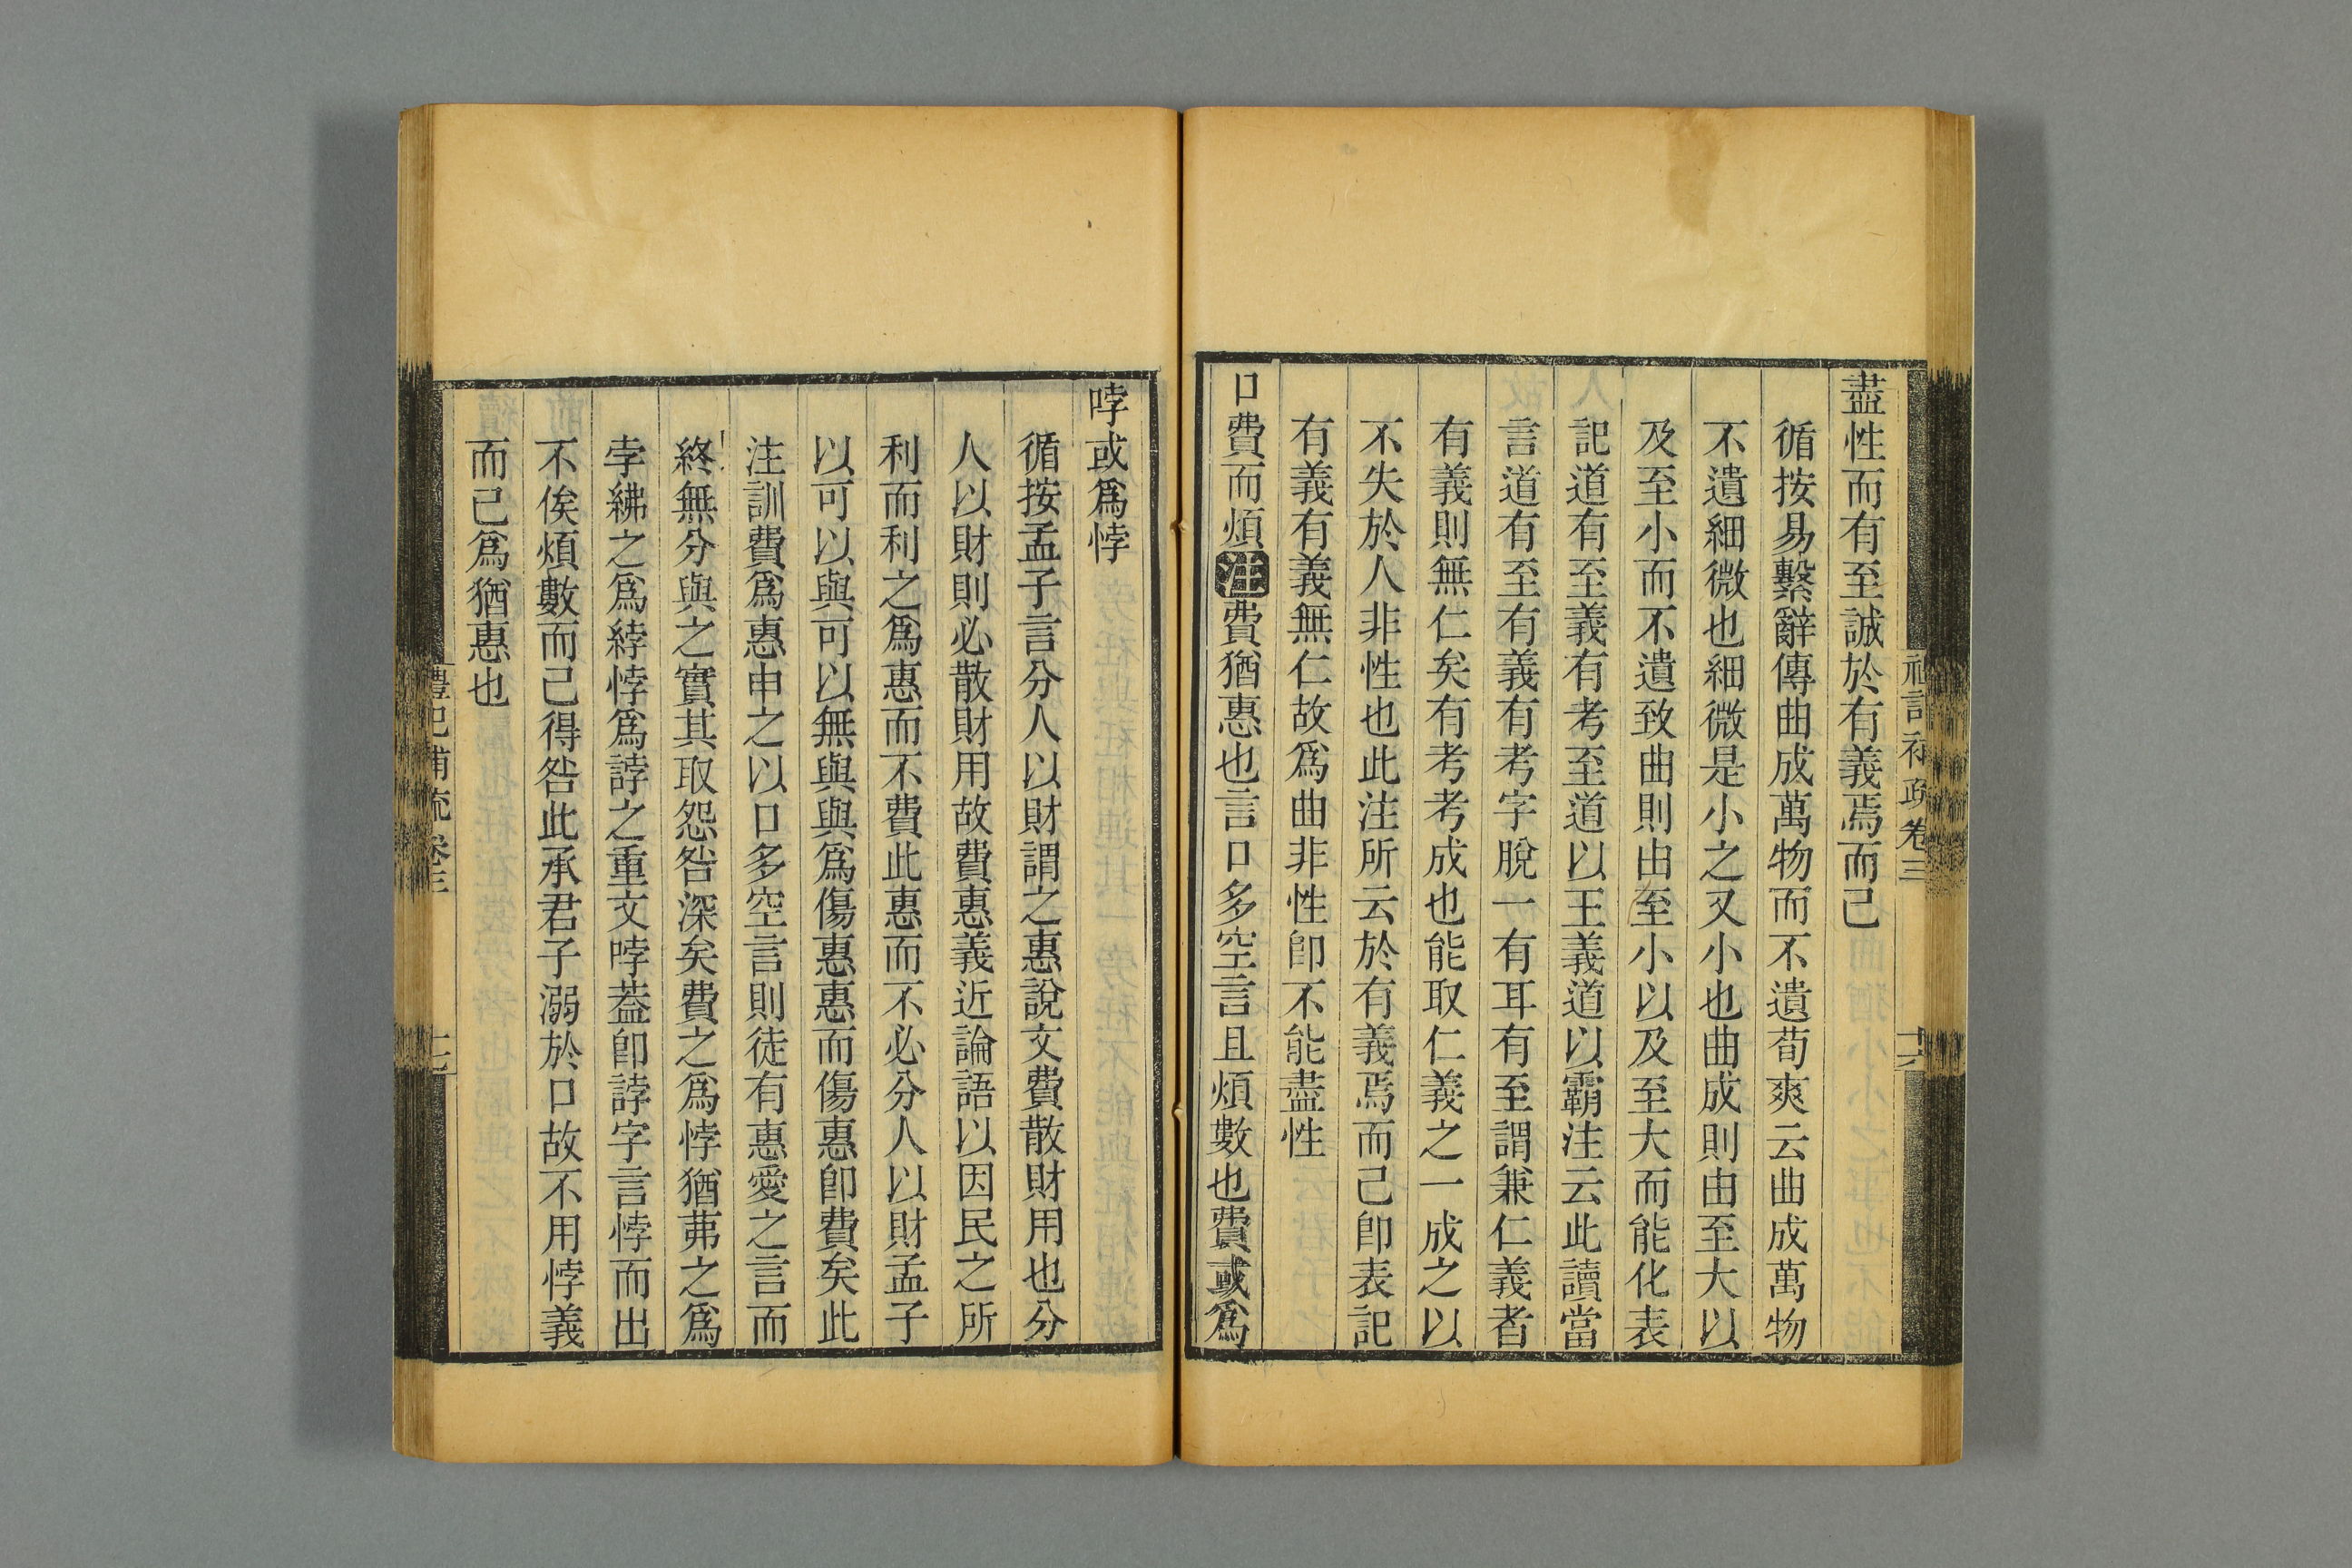 盡性而有至誠於有義焉而已
循按易繫辭傳曲成萬物而不遺荀爽云曲成萬物
不遺細微也細微是小之又小也曲成則由至大以
及至小而不遺致曲則由至小以及至大而能化表
記道有至義有考至道以王義道以霸注云此讀當
言道有至有義有考字脫一有耳有至謂兼仁義者
有義則無仁矣有考考成也能取仁義之一成之以
不失於人非性也此注所云於有義焉而已卽表記
有義有義無仁故爲曲非性卽不能盡性
口費而煩注費猶惠也言口多空言且煩數也費或爲
哱或爲悖
循按孟子言分人以財謂之惠說文費散財用也分
人以財則必散財用故費惠義近論語以因民之所
利而利之爲惠而不費此惠而不必分人以財孟子
以可以與可以無與與爲傷惠惠而傷惠卽費矣此
注訓費爲惠申之以口多空言則徒有惠愛之言而
終無分與之實其取怨咎深矣費之爲悖猶茀之爲
孛紼之爲綍悖爲誖之重文哱葢卽誖字言悖而出
不俟煩數而已得咎此承君子溺於口故不用悖義
而已爲猶惠也
禮記補疏卷三
十七